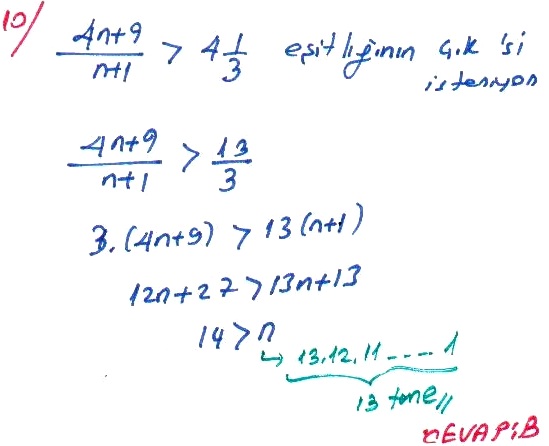 10/ (4n+9)/(n+1) > 4 1/3 eşitliğinin Ç.K 'si
isteniyor
(4n+9)/(n+1) > 13/3
3.(4n+9) > 13(n+1)
12n+27 > 13n+13
14 > n
↳ 13,12,11 ..... 1
13 tane //
CEVAP:B